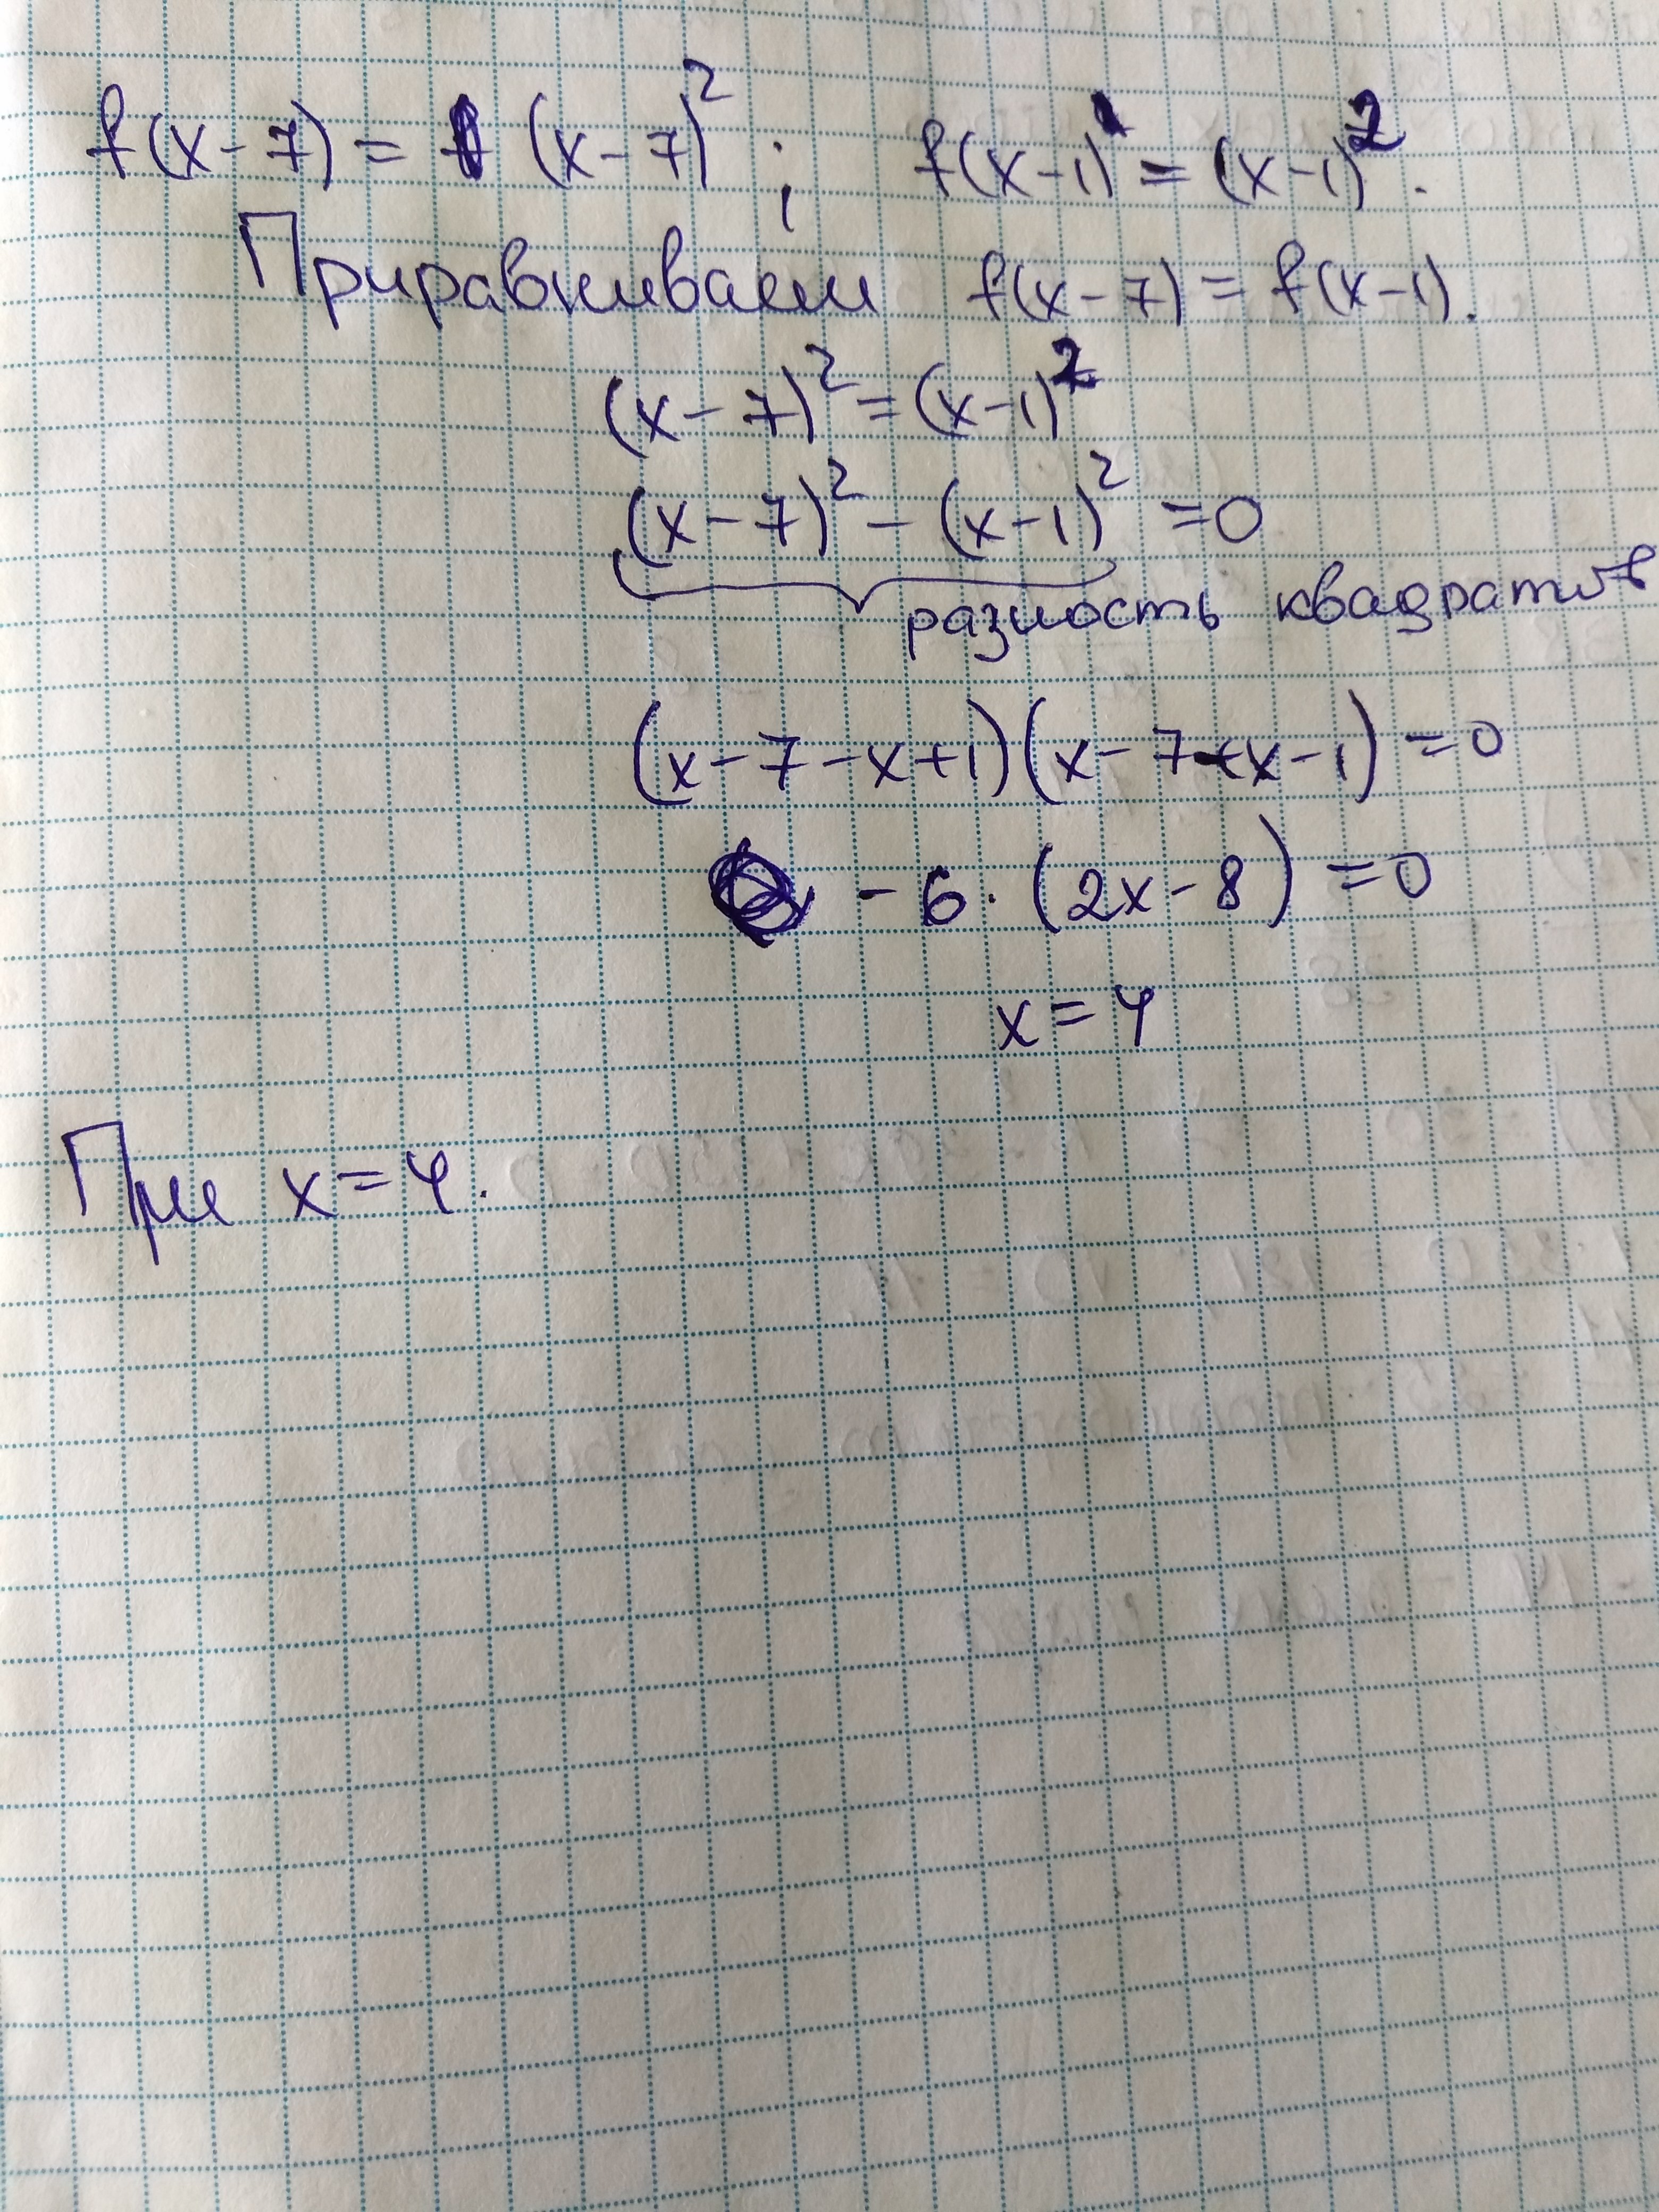 f(x-7) = (x-7)² ; f(x-1) = (x-1)².
Приравниваем f(x-7) = f(x-1).
(x-7)² = (x-1)²
(x-7)² - (x-1)² = 0
разность квадратов
(x-7-x+1)(x-7+x-1) = 0
-6·(2x-8) = 0
x = 4
При x = 4.